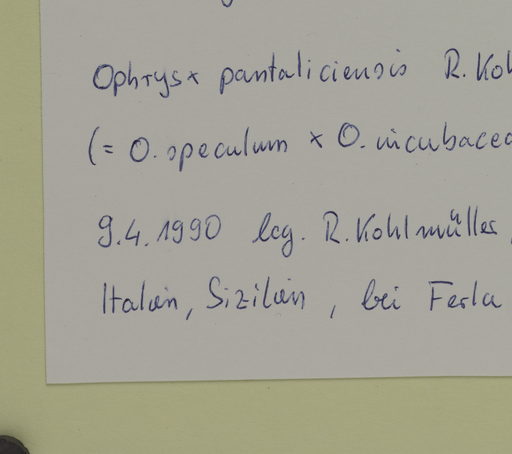 Ophrys x pantaliciensis R. Koh
(= O. speculum x O. incubacea
9.4.1990 leg. R. Kohlmüller,
Italien, Sizilien, bei Ferla